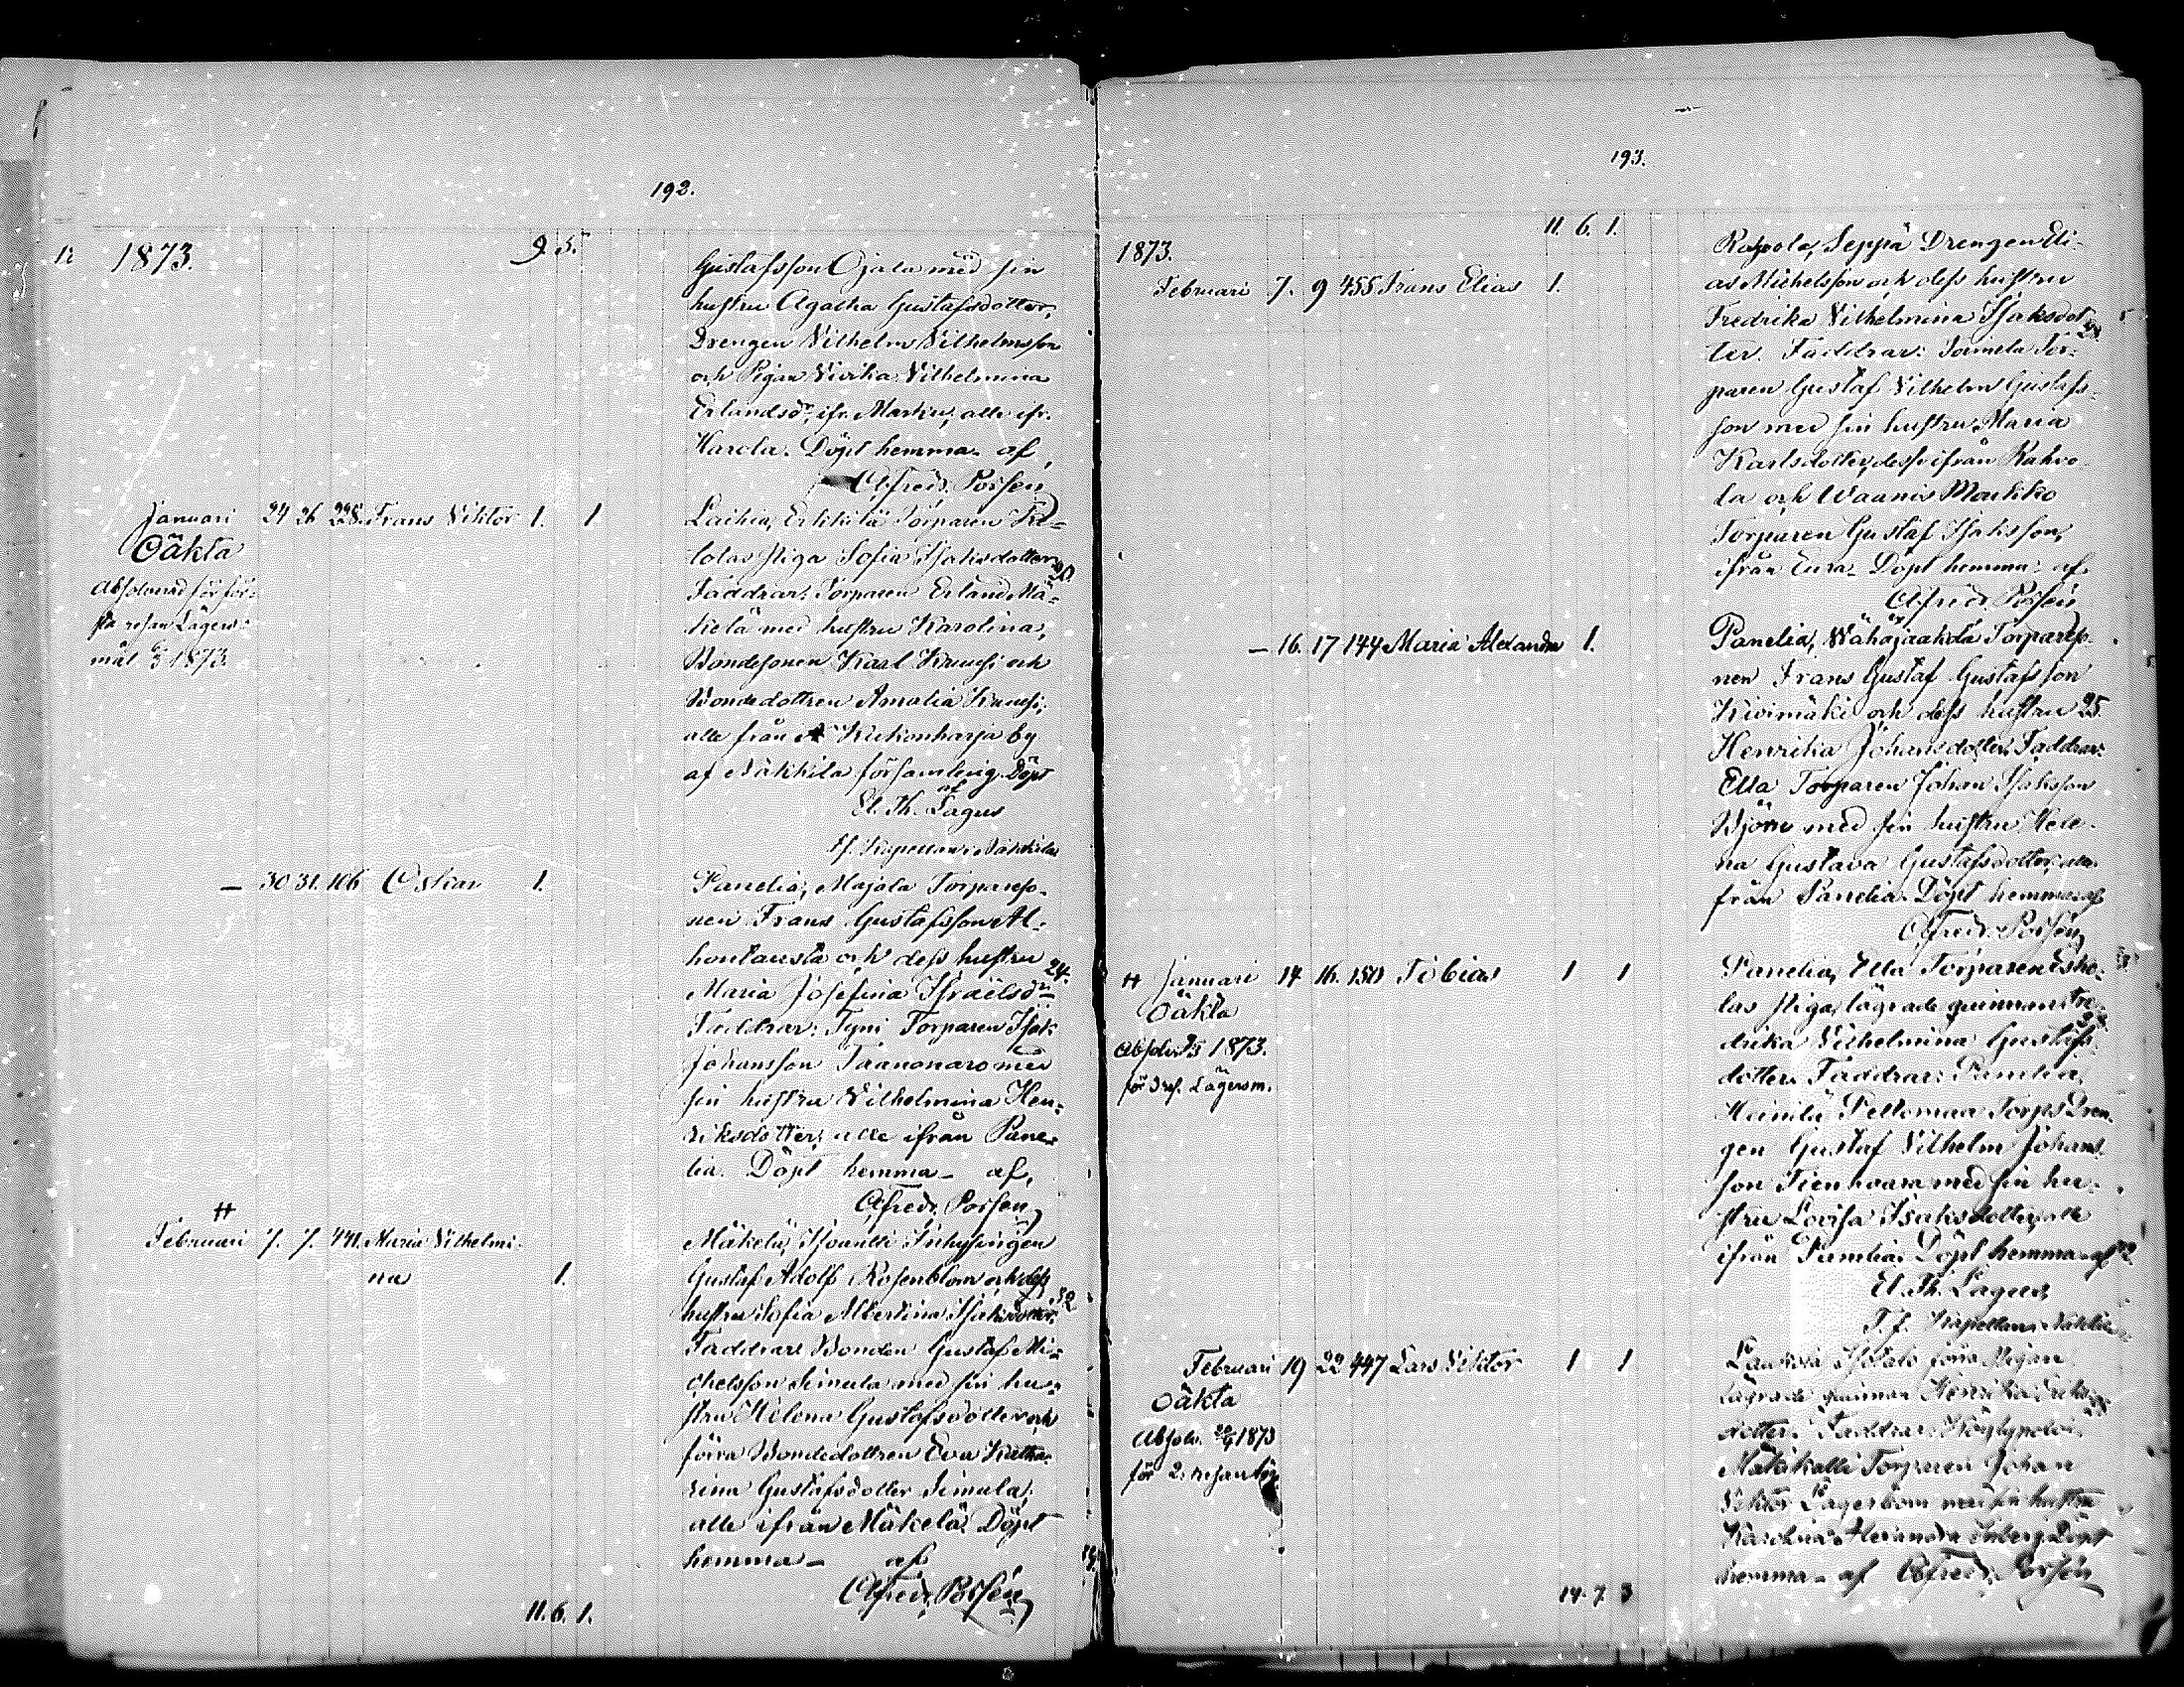 192.
1873.
9. 5.
Gustafsson Ojala med sin
hustru Agatha Gustafsdotter,
Drengen Vilhelm Vilhelmsson
och Pigan Vivika Vilhelmina
Erlandsdr, ifr. Markus, alla ifr.
Harola. Döpt hemma af
Alfred. Porsén
Januari 24 26 228. Frans Viktor 1. 1
Oäkta
Absolverad för för-
sta resan Lägers-
mål 1873.
Laihia, Erkkilä Torparen
lolas Piga Sofia Isaksdotter
Faddrar: Torparen Erland Mä-
kelä med hustru Karolina,
Bondesonen Karl Krausi och
Bondedottren Amalia Krausi,
alla från Kukonharja by
af Nakkila församling. Döpt
af
El. Th. Lagus
Kapellan i Nakkila
— 30 31. 106 Oskar 1.
Panelia, Majala Torpareso-
nen Frans Gustafsson Al-
hontausta och dess hustru
Maria Josefina Israelsdr 24.
Faddrar: Tyni Torparen Isak
Johansson Taanonaro med
sin hustru Vilhelmina Hen-
riksdotter; alla ifrån Pane-
lia. Döpt hemma af,
Alfred. Porsén
Februari 7. 7. 441. Maria Vilhelmi-
na 1.
Mäkelä, Isoantti Inhysingen
Gustaf Adolf Rosenblom och dess
hustru Sofia Albertina Isaksdotter. 32
Faddrar: Bonden Gustaf Mi-
chelsson Simula med sin hu-
stru Helena Gustafsdotter och
förra Bondedottren Eva Katha-
rina Gustafsdotter Simula,
alla ifrån Mäkelä. Döpt
hemma af
Alfred. Porsén
11. 6. 1.
193.
11. 6. 1.
1873.
Februari 7. 9 455 Frans Elias 1.
Rahvola, Seppä Drengen Eli-
as Michelsson och dess hustru
Fredrika Vilhelmina Isaksdot-
ter. Faddrar: Tor-
paren Gustaf Vilhelm Gustafs-
son med sin hustru Maria
Karlsdotter, desse ifrån Rahvo-
la och Waanis Markko
Torparen Gustaf Isaksson,
ifrån Eura. Döpt hemma af
Alfred. Porsén
— 16. 17 144 Maria Alexandra 1.
Panelia, Wähäjaakola Torpareso-
nen Frans Gustaf Gustafsson
Kivimäki och dess hustru 25.
Henrika Johansdotter. Faddrar:
Ella Torparen Johan Isaksson
Björn med sin hustru Hele-
na Gustava Gustafsdotter, alla
från Panelia. Döpt hemma af
Alfred. Porsén
Januari 14 16. 150 Tobias 1 1
Oäkta
Absolv. 1873.
för 3 res. Lägersm.
Panelia, Ella Torparen Esko-
las Piga, lägrade qvinnan Fre-
drika Vilhelmina Gustafs-
dotter. Faddrar: Panelia,
Heinilä Peltomaa Torps Dren-
gen Gustaf Vilhelm Johans-
son Tienhaara med sin hu-
stru Lovisa Isaksdotter, alla
ifrån Panelia. Döpt hemma af
El. Th. Lagus
T. f. Kapellan i Nakkila
Februari 19 22 447 Lars Viktor 1 1
Oäkta
Absolv. 1873
för 2. resan
förra Pigan
Lägrade qvinnan Henrika
dotter. Faddrar:
Torparen Johan
Viktor Lagerbom med sin hustru
Karolina Alexandra Döpt
hemma af Alfred. Porsén
14. 7 3